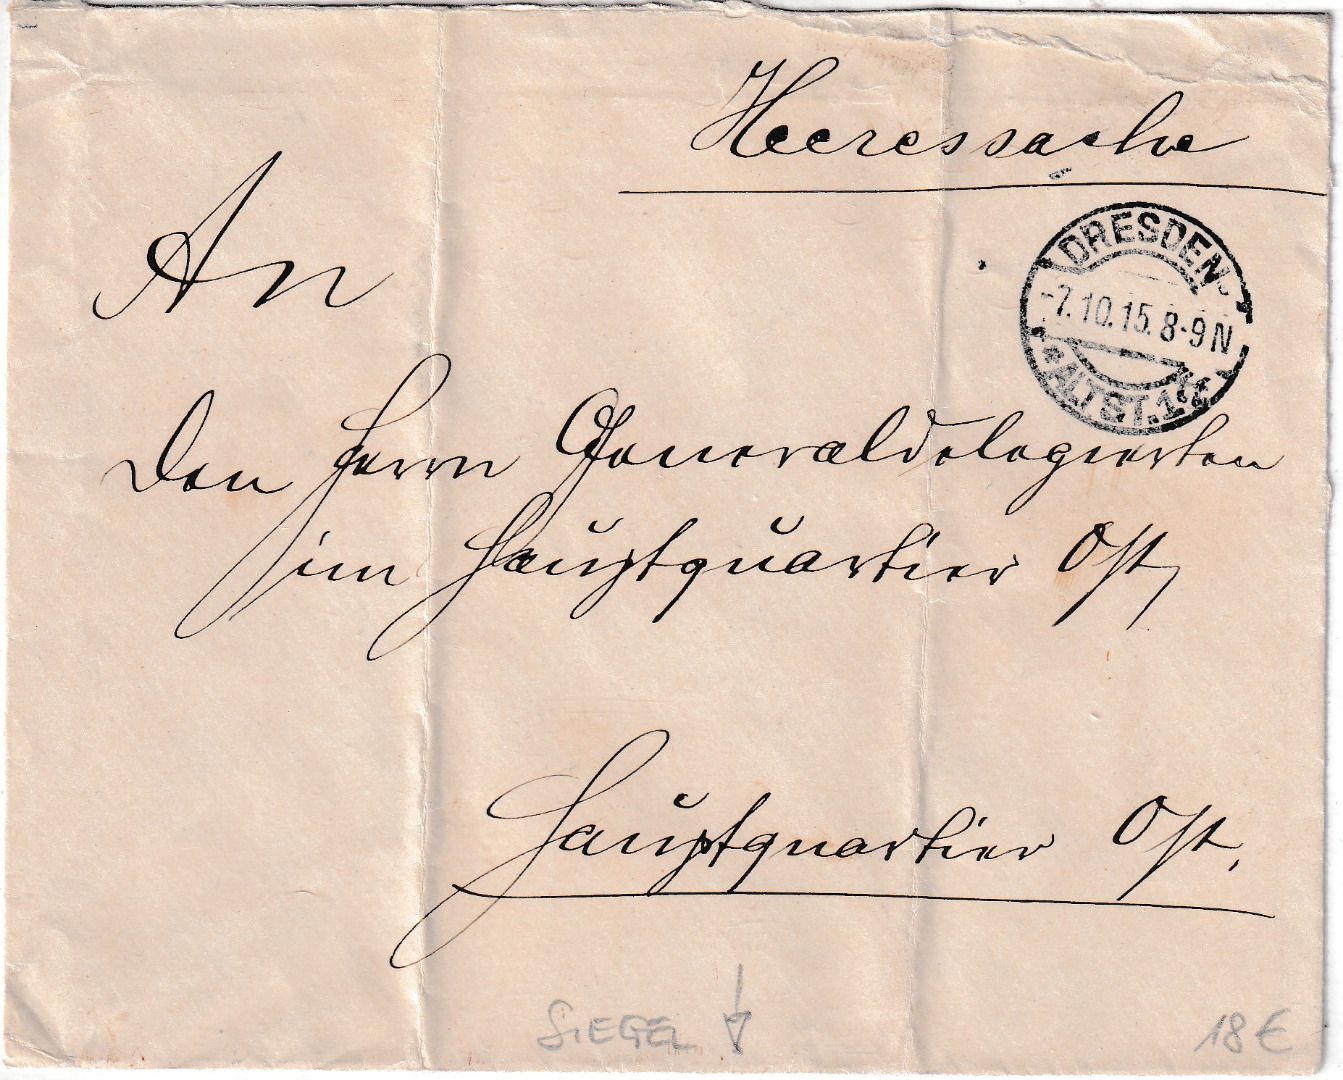 Heeressache
DRESDEN-
-7.10.15. 8-9 N
* ALTST. 1
An
Den Herrn Generaldelegierten
im Hauptquartier Ost,
Hauptquartier Ost.
SIEGEL
18 €